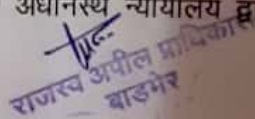 अधीनस्थ न्यायालय द्व
राजस्व अपील प्राधिकारी
बाड़मेर